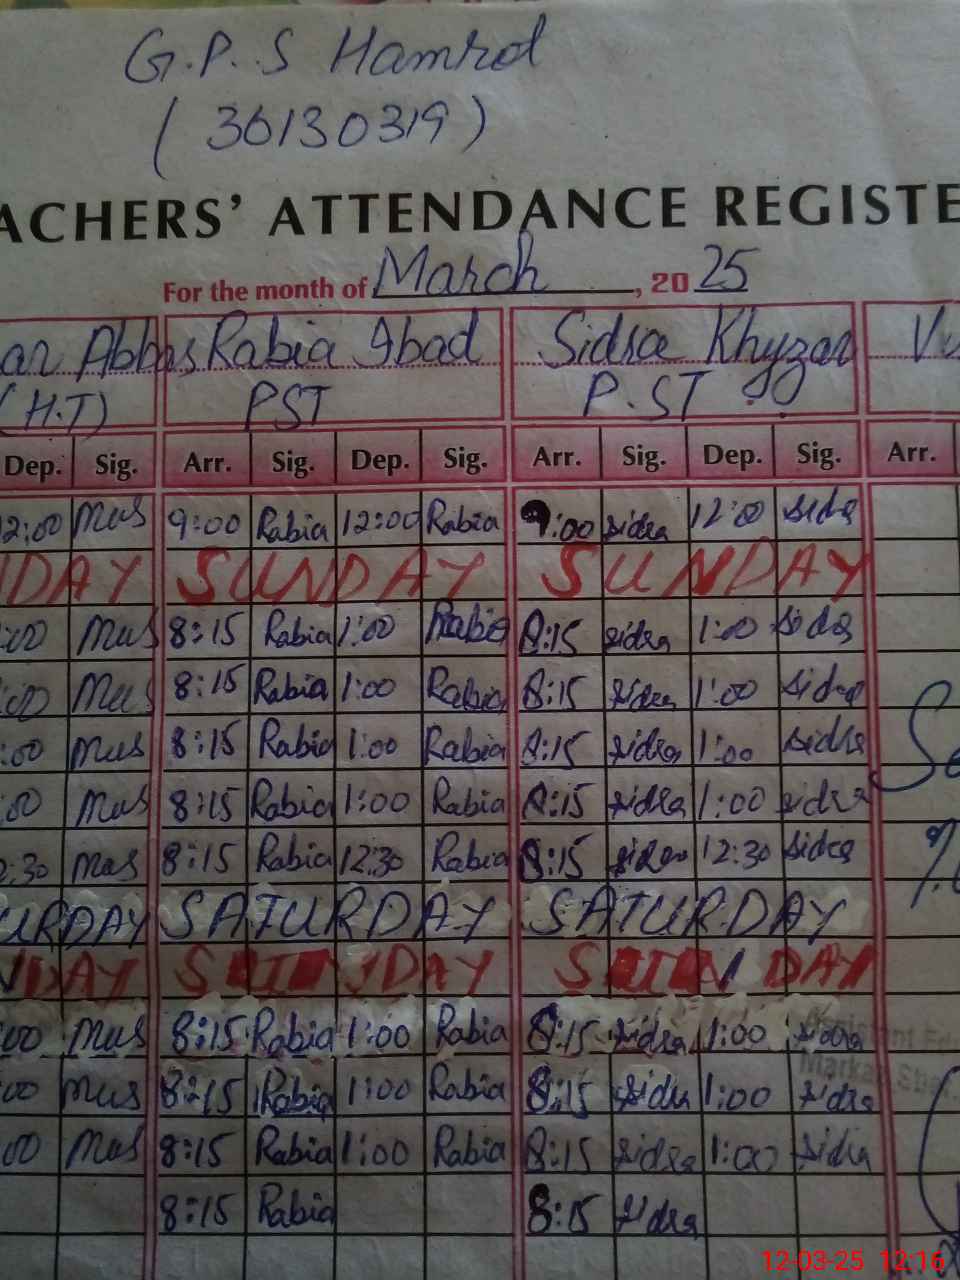 G.P.S Hamrol
(36130319)
ACHERS' ATTENDANCE REGISTE
For the month of March, 2025
ar Abbas Rabia Ibad Sidra Khyzar
(H.T) PST P.ST
Dep. Sig. Arr. Sig. Dep. Sig. Arr. Sig. Dep. Sig. Arr.
12:00 Mus 9:00 Rabia 12:00 Rabia 9:00 sidra 12:00 sidra
DAY SUNDAY SUNDAY
:00 Mus 8:15 Rabia 1:00 Rabia 8:15 sidra 1:00 sidra
:00 Mus 8:15 Rabia 1:00 Rabia 8:15 sidra 1:00 sidra
:00 Mus 8:15 Rabia 1:00 Rabia 8:15 sidra 1:00 sidra
:00 Mus 8:15 Rabia 1:00 Rabia 8:15 sidra 1:00 sidra
2:30 Mus 8:15 Rabia 12:30 Rabia 8:15 sidra 12:30 sidra
URDAY SATURDAY SATURDAY
DAY SUNDAY SUNDAY
00 Mus 8:15 Rabia 1:00 Rabia 8:15 sidra 1:00 sidra
00 Mus 8:15 Rabia 1:00 Rabia 8:15 sidra 1:00 sidra
00 Mus 8:15 Rabia 1:00 Rabia 8:15 sidra 1:00 sidra
8:15 Rabia 8:15 sidra
12-03-25 12:16